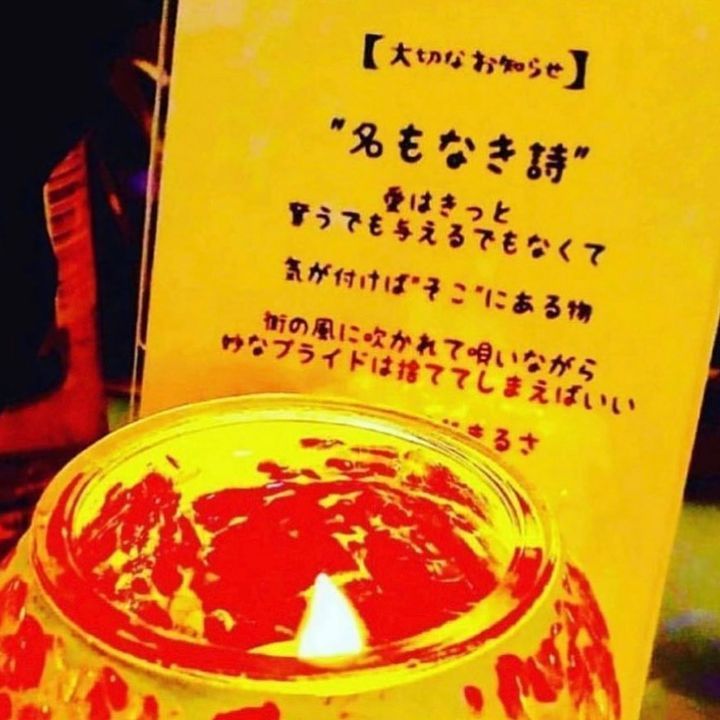 【大切なお知らせ】
"名もなき詩"
愛はきっと
奪うでも与えるでもなくて
気が付けば"そこ"にある物
街の風に吹かれて唄いながら
妙なプライドは捨ててしまえばいい
じまるさ